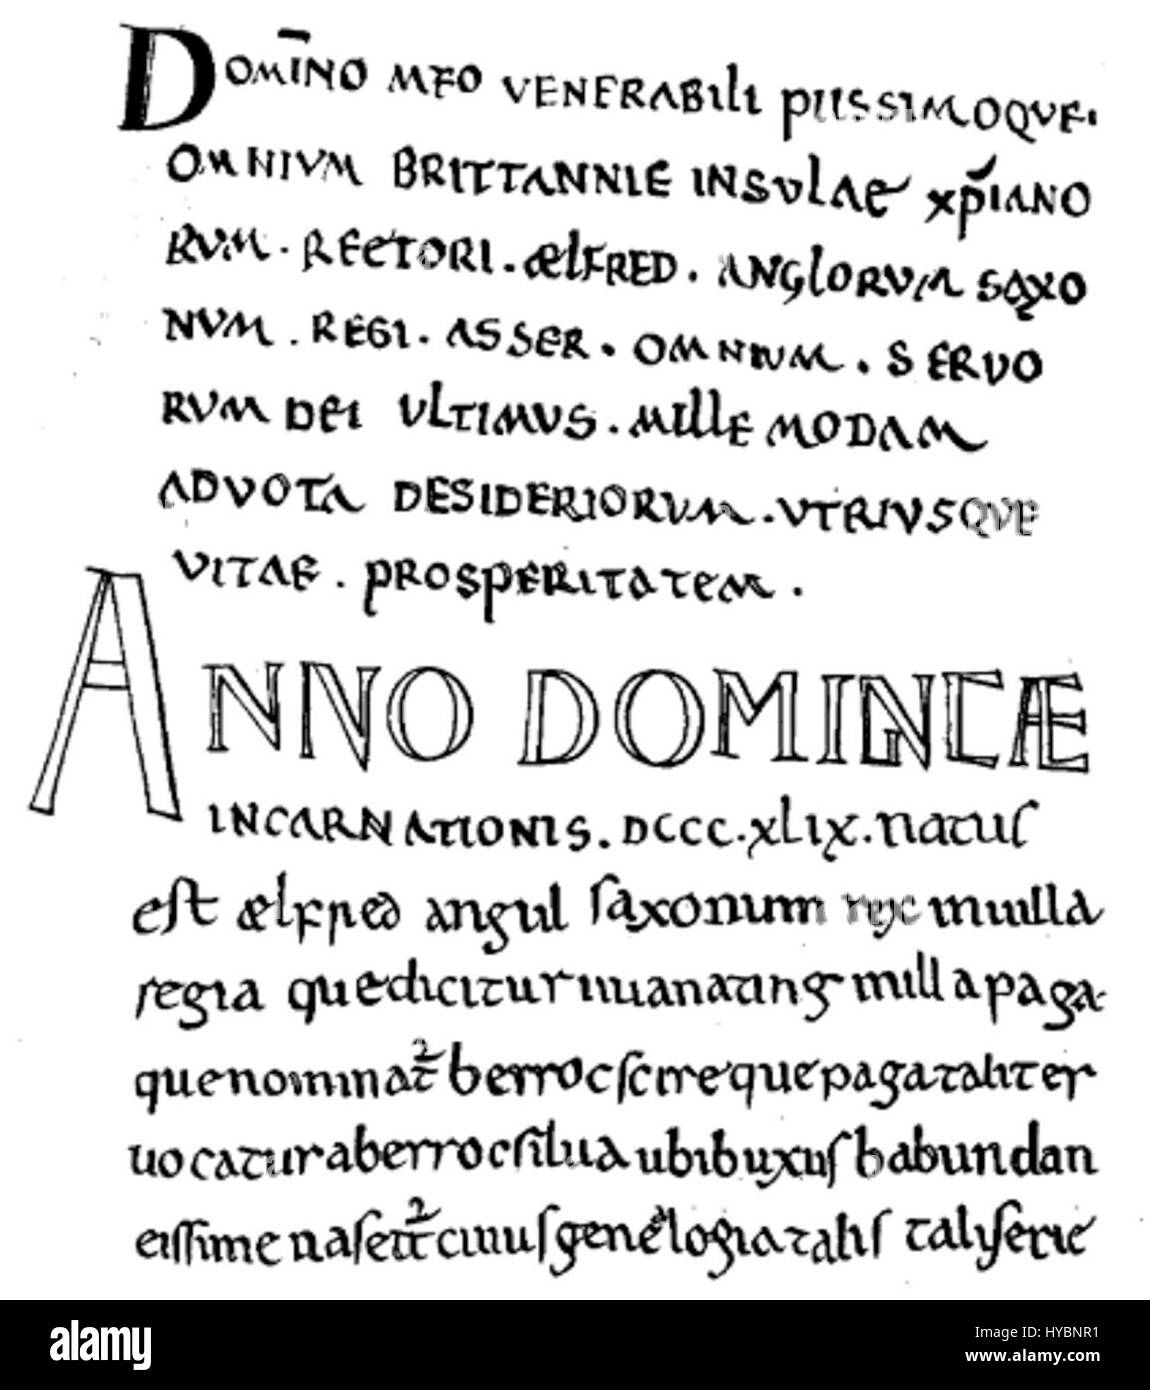 DOMĪNO MEO VENERABILI PIISSIMOQUE·
OMNIUM BRITTANNIE INSULAE XP̄IANO
RUM · RECTORI · ÆLFRED · ANGLORUM SAXO
NUM · REGI · ASSER · OMNIUM · SERVO
RUM DEI ULTIMUS · MILLE MODAM
ADVOTA DESIDERIORUM · UTRIUSQUE
VITAE · PROSPERITATEM ·
ANNO DOMINICÆ
INCARNATIONIS · DCCC·XLIX·natus
est ælfred angul saxonum in uilla
regia que dicitur uuanating in illa paga·
que nominat̄ berrocscire que paga taliter
uocatur a berroc silua ubi buxus habundan
tissime nascit̄ cuius genelogia talis tali serie
alamy stock photo
Image ID: HYBNR1
www.alamy.com